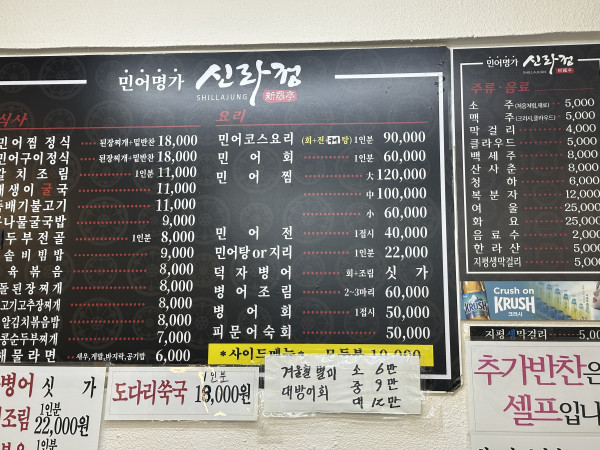 민어명가 신라정
SHILLAJUNG 新羅亭
식사
민어찜 정식 된장찌개+밑반찬 18,000
민어구이정식 된장찌개+밑반찬 18,000
갈치조림 1인분 11,000
매생이굴국 11,000
뚝배기불고기 11,000
콩나물굴국밥 9,000
두부전골 1인분 8,000
솔비빔밥 9,000
육볶음 8,000
돌된장찌개 8,000
고기고추장찌개 8,000
알김치볶음밥 8,000
콩순두부찌개 7,000
해물라면 새우,게밥,바지락,공기밥 6,000
요리
민어코스요리 (회+전+탕) 1인분 90,000
민어회 1인분 60,000
민어찜 大 120,000
中 100,000
小 60,000
민어전 1접시 40,000
민어탕or지리 1인분 22,000
덕자병어 회+조림 싯가
병어조림 2~3마리 60,000
병어회 1접시 50,000
피문어숙회 50,000
*사이드메뉴* 모두부 10,000
신라정
민어명가
SHILLAJUNG 新羅亭
주류·음료
소주 (처음처럼,새로) 5,000
맥주 (크러시,클라우드) 5,000
막걸리 4,000
클라우드 5,000
백세주 8,000
산사춘 8,000
청하 6,000
복분자 12,000
여울 25,000
화요 25,000
음료수 2,000
한라산 5,000
지평생막걸리 5,000
Crush on
KRUSH
크러시
지평생막걸리 5,000
추가반찬은
셀프입니
병어 싯가
조림 1인분 22,000원
1인분
도다리쑥국 1인분 13,000원
겨울철 별미 소 6만
대방어회 중 9만
대 12만